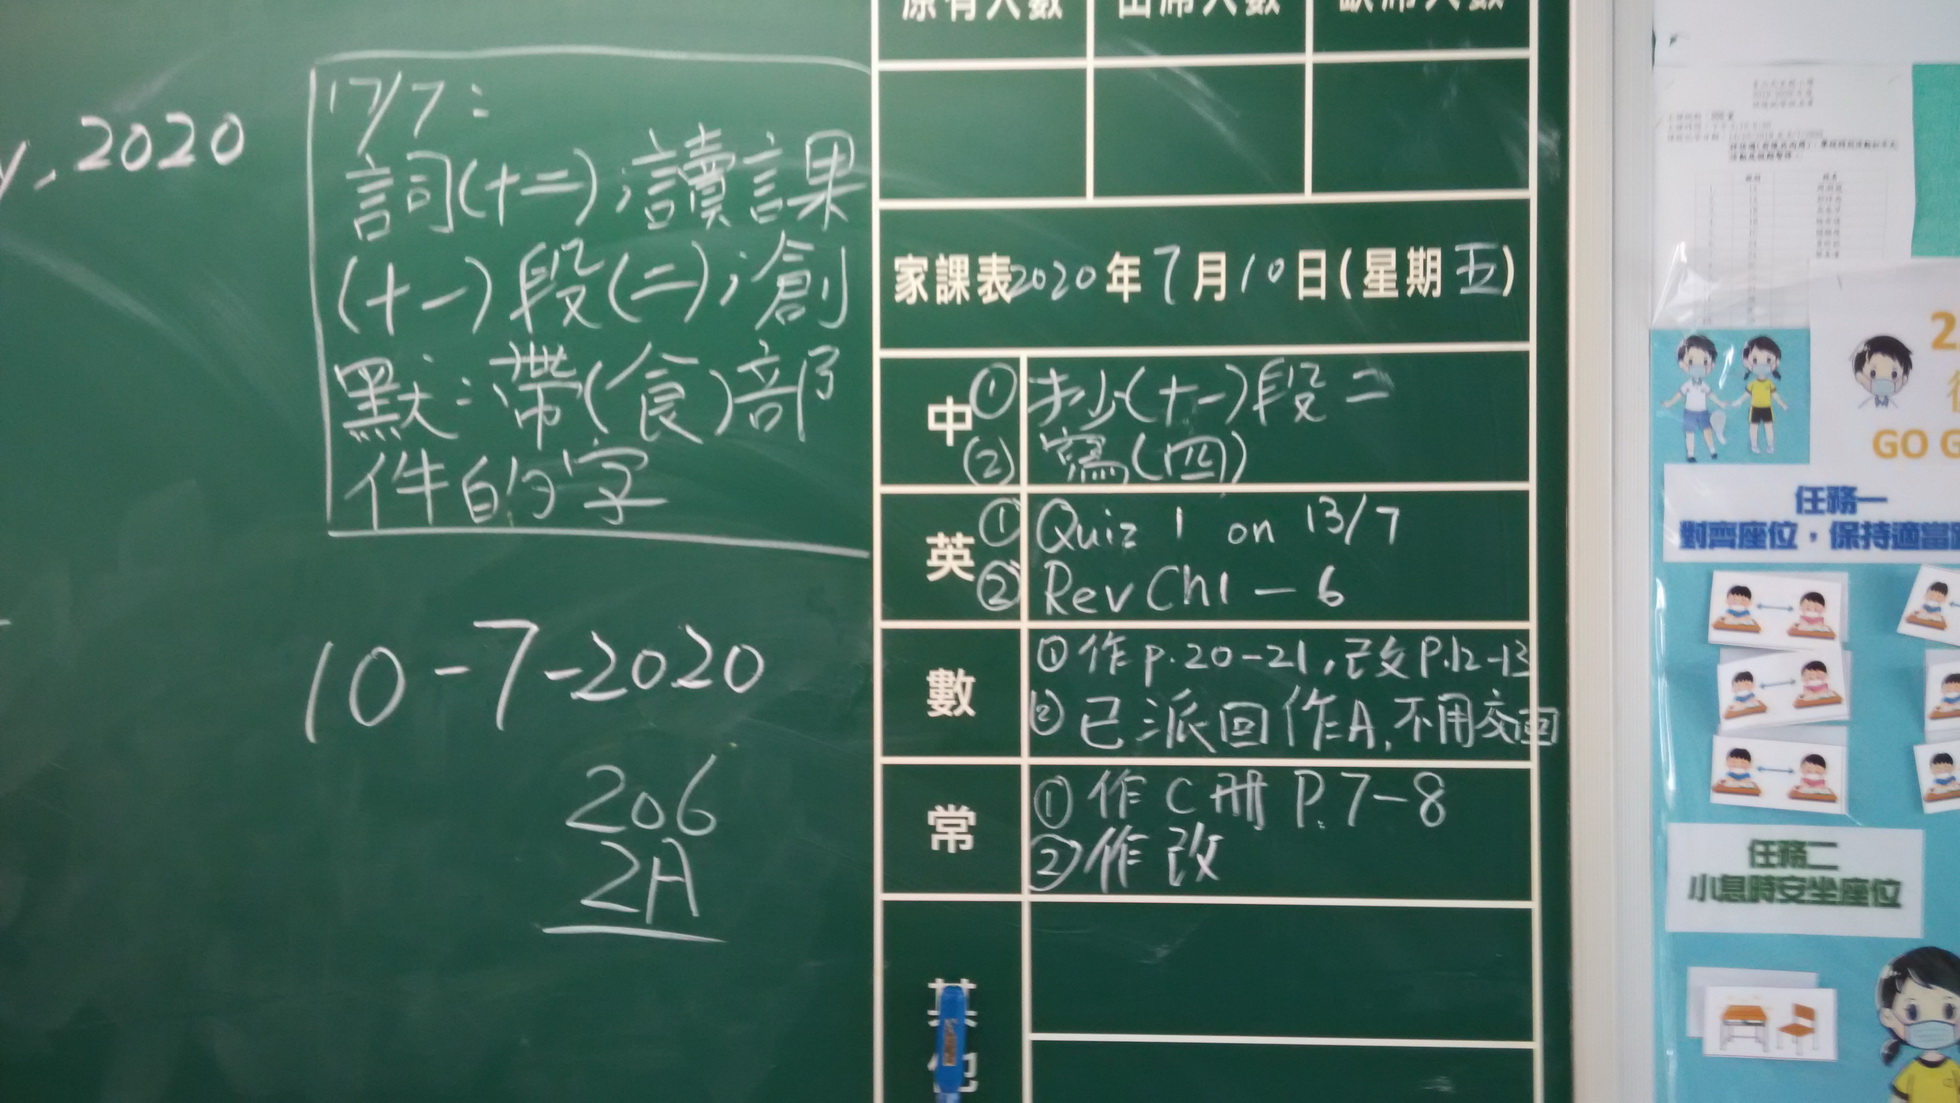 原有人數 出席人數 缺席人數
y, 2020
17/7:
詞(十二);讀課
(十一)段(二);創
默:帶(食)部
件的字
10-7-2020
206
2A
家課表2020年7月10日(星期五)
中
① 抄(十一)段二
② 寫(四)
英
① Quiz 1 on 13/7
② Rev Ch1 - 6
數
① 作 p.20-21,改 P.12-13
② 已派回作A,不用交回
常
① 作 C冊 P.7-8
② 作改
其他
GO G
任務一
對齊座位,保持適當
任務二
小息時安坐座位